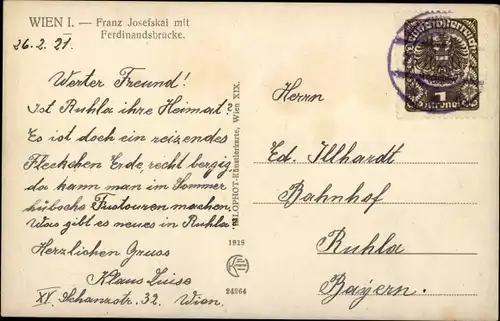 WIEN I. — Franz Josefskai mit
Ferdinandsbrücke.
26. 2. 21.
Werter Freund!
Ist Ruhla ihre Heimart?
Es ist doch ein reizendes
Fleckchen Erde, recht bergig
da kann man im Sommer
hübsche Fustouren machen.
Was gibt es neues in Ruhla
Herzlichen Gruss
Klaus Luise
XV. Schanzstr. 32. Wien.
KILOPHOT-Künstlerkarte, Wien XIX.
1918
24264
Deutschösterreich
1
Krone
Herrn
Ed. Illhardt
Bahnhof
Ruhla
Bayern.